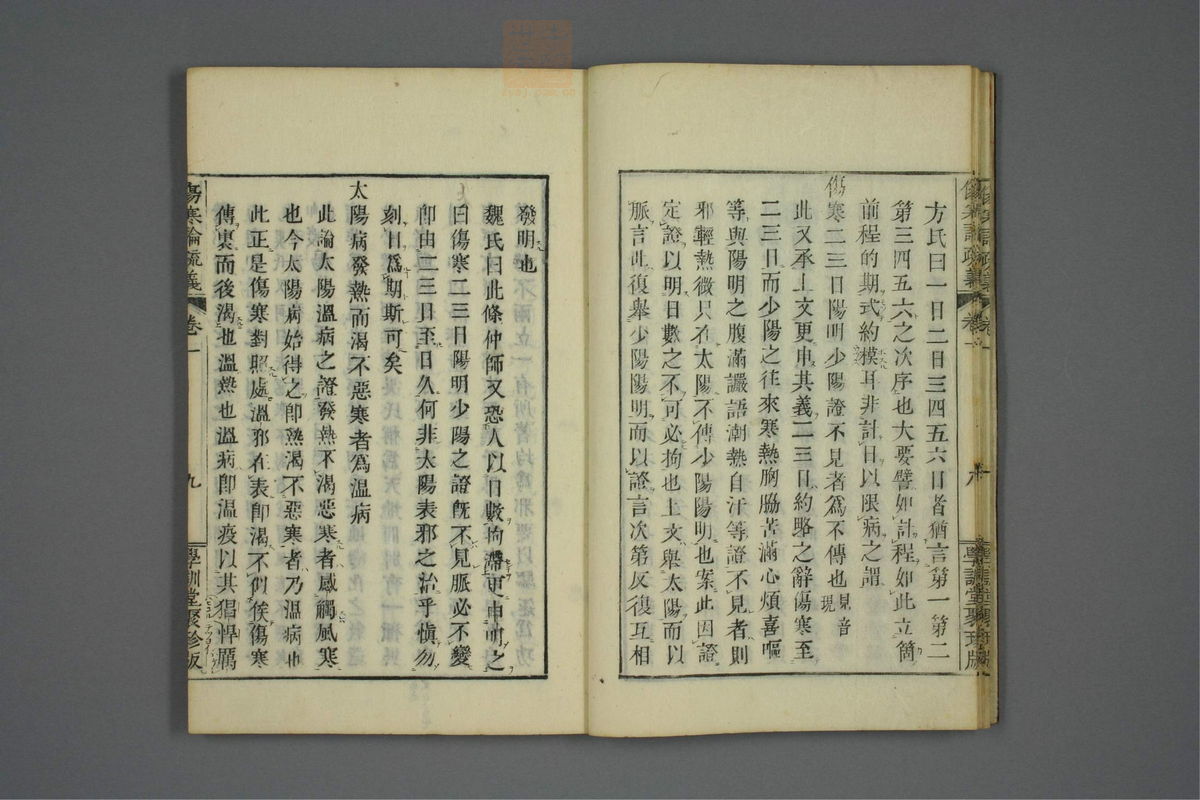 方氏曰一日二日三四五六日者猶言第一第二
第三四五六之次序也大要譬如計程如此立箇
前程的期式約摸耳非計日以限病之謂
傷寒二三日陽明少陽證不見者爲不傳也見音現
此又承上文更申其義二三日約略之辭傷寒至
二三日而少陽之往來寒熱胸脇苦滿心煩喜嘔
等與陽明之腹滿讝語潮熱自汗等證不見者則
邪輕熱微只在太陽不傳少陽陽明也案此因證
定證以明日數之不可必拘也上文舉太陽而以
脈言此復舉少陽陽明而以證言次第反復互相
發明也
魏氏曰此條仲師又恐人以日數拘滯更申明之
曰傷寒二三日陽明少陽之證旣不見脈必不變
卽由二三日至日久何非太陽表邪之治乎愼勿
刻日爲期斯可矣
太陽病發熱而渴不惡寒者爲温病
此論太陽溫病之證發熱不渴惡寒者感觸風寒
也今太陽病始得之卽熱渴不惡寒者乃溫病也
此正是傷寒對照處溫邪在表卽渴不俟傷寒
傳裏而後渴也溫熱也溫病卽溫疫以其猖悍厲
傷寒論疏義 卷一 九 學訓堂聚珍版